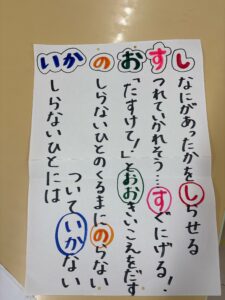 いかのおすし
しらないひとには
ついていかない
しらないひとのくるまにのらない
「たすけて!」とおおきいこえをだす
つれていかれそう…すぐにげる!
なにがあったかをしらせる